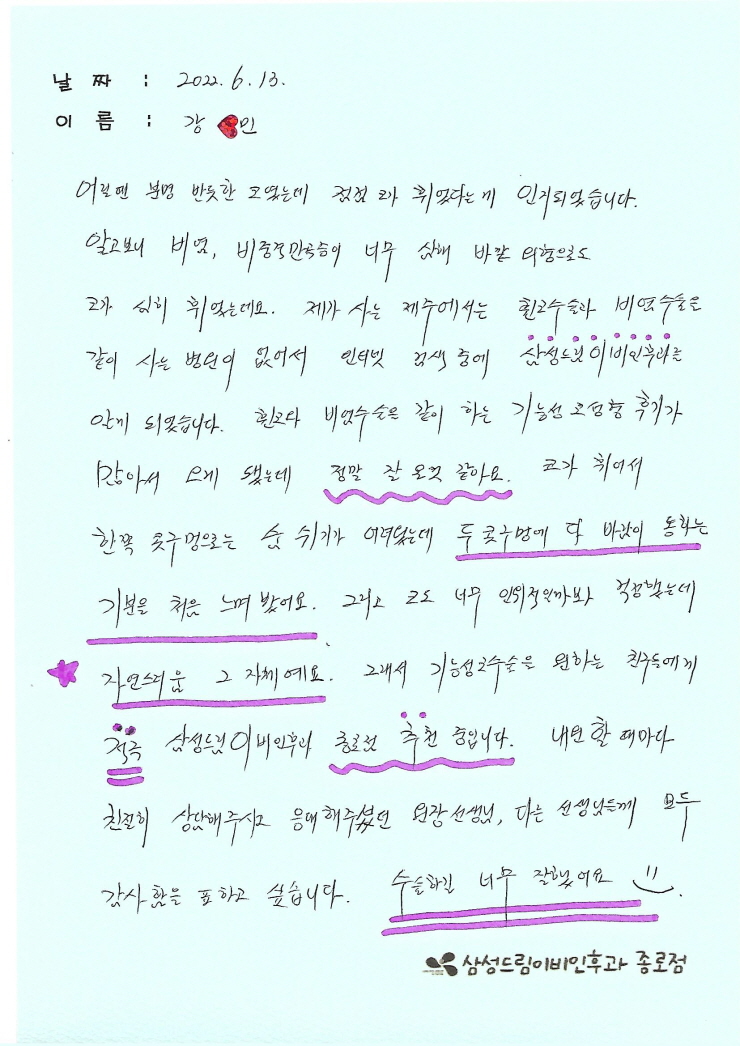 날 짜 : 2022. 6. 13.
이 름 : 강 민
어릴땐 분명 반듯한 코였는데 점점 코가 휘었다는게 인지되었습니다.
알고보니 비염, 비중격만곡증이 너무 심해 바깥 외형으로도
코가 심히 휘었는데요. 제가 사는 제주에서는 휜코수술과 비염수술을
같이 하는 병원이 없어서 인터넷 검색 중에 삼성드림이비인후과를
알게 되었습니다. 휜코와 비염수술을 같이 하는 기능성 코성형 후기가
많아서 오게 됐는데 정말 잘 온것 같아요. 코가 휘어서
한쪽 콧구멍으로는 숨 쉬기가 어려웠는데 두 콧구멍에 다 바람이 통하는
기분을 처음 느껴 봤어요. 그리고 코도 너무 인위적일까봐 걱정했는데
자연스러움 그 자체예요. 그래서 기능성코수술을 원하는 친구들에게
적극 삼성드림이비인후과 종로점 추천 중입니다. 내원 할 때마다
친절히 상담해주시고 응대해주셨던 원장선생님, 다른 선생님들께 모두
감사함을 표하고 싶습니다. 수술하길 너무 잘했어요
삼성드림이비인후과 종로점